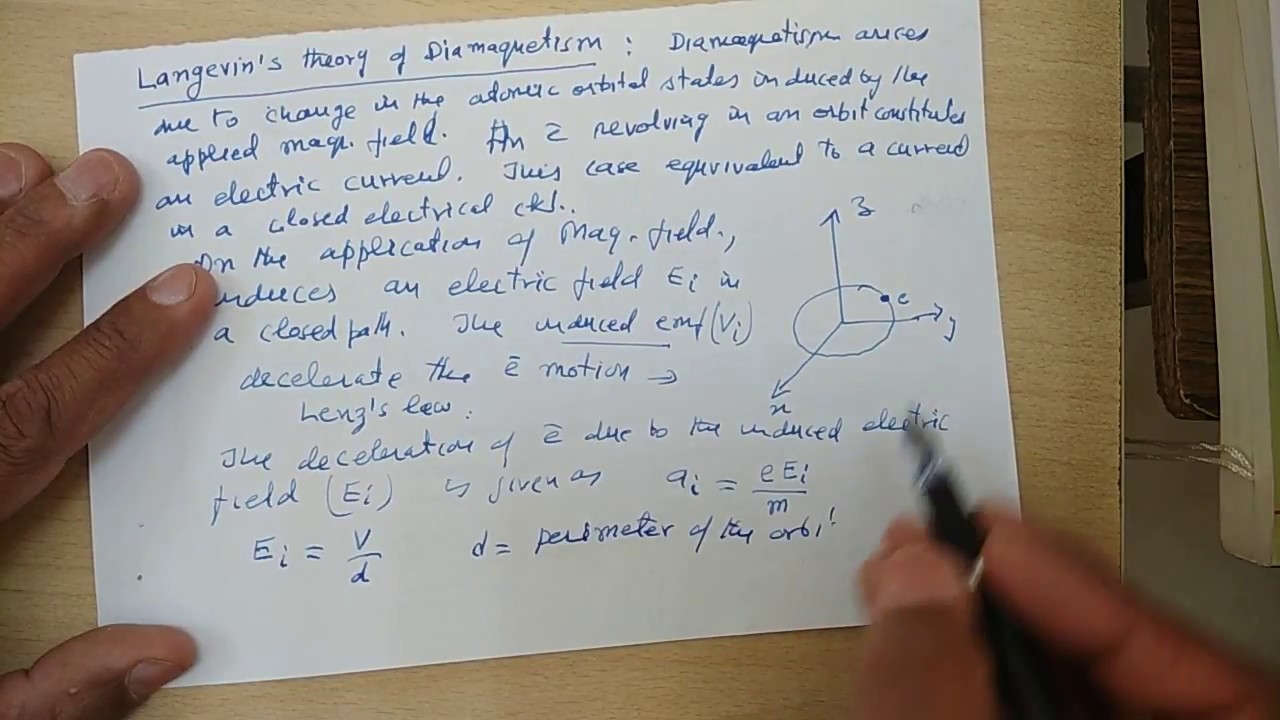 Langevin's theory of Diamagnetism : Diamagnetism arises
due to change in the atomic orbital states induced by the
applied magn. field. An ē revolving in an orbit constitutes
an electric current. This case equivalent to a current
in a closed electrical ckt.
On the application of Mag. field.,
induces an electric field Ei in
a closed path. The induced emf (Vi)
decelerate the ē motion →
Lenz's law :
The deceleration of ē due to the induced electric
field (Ei) is given as ai = eEi/m
Ei = V/d d = perimeter of the orbi
z
e
y
x